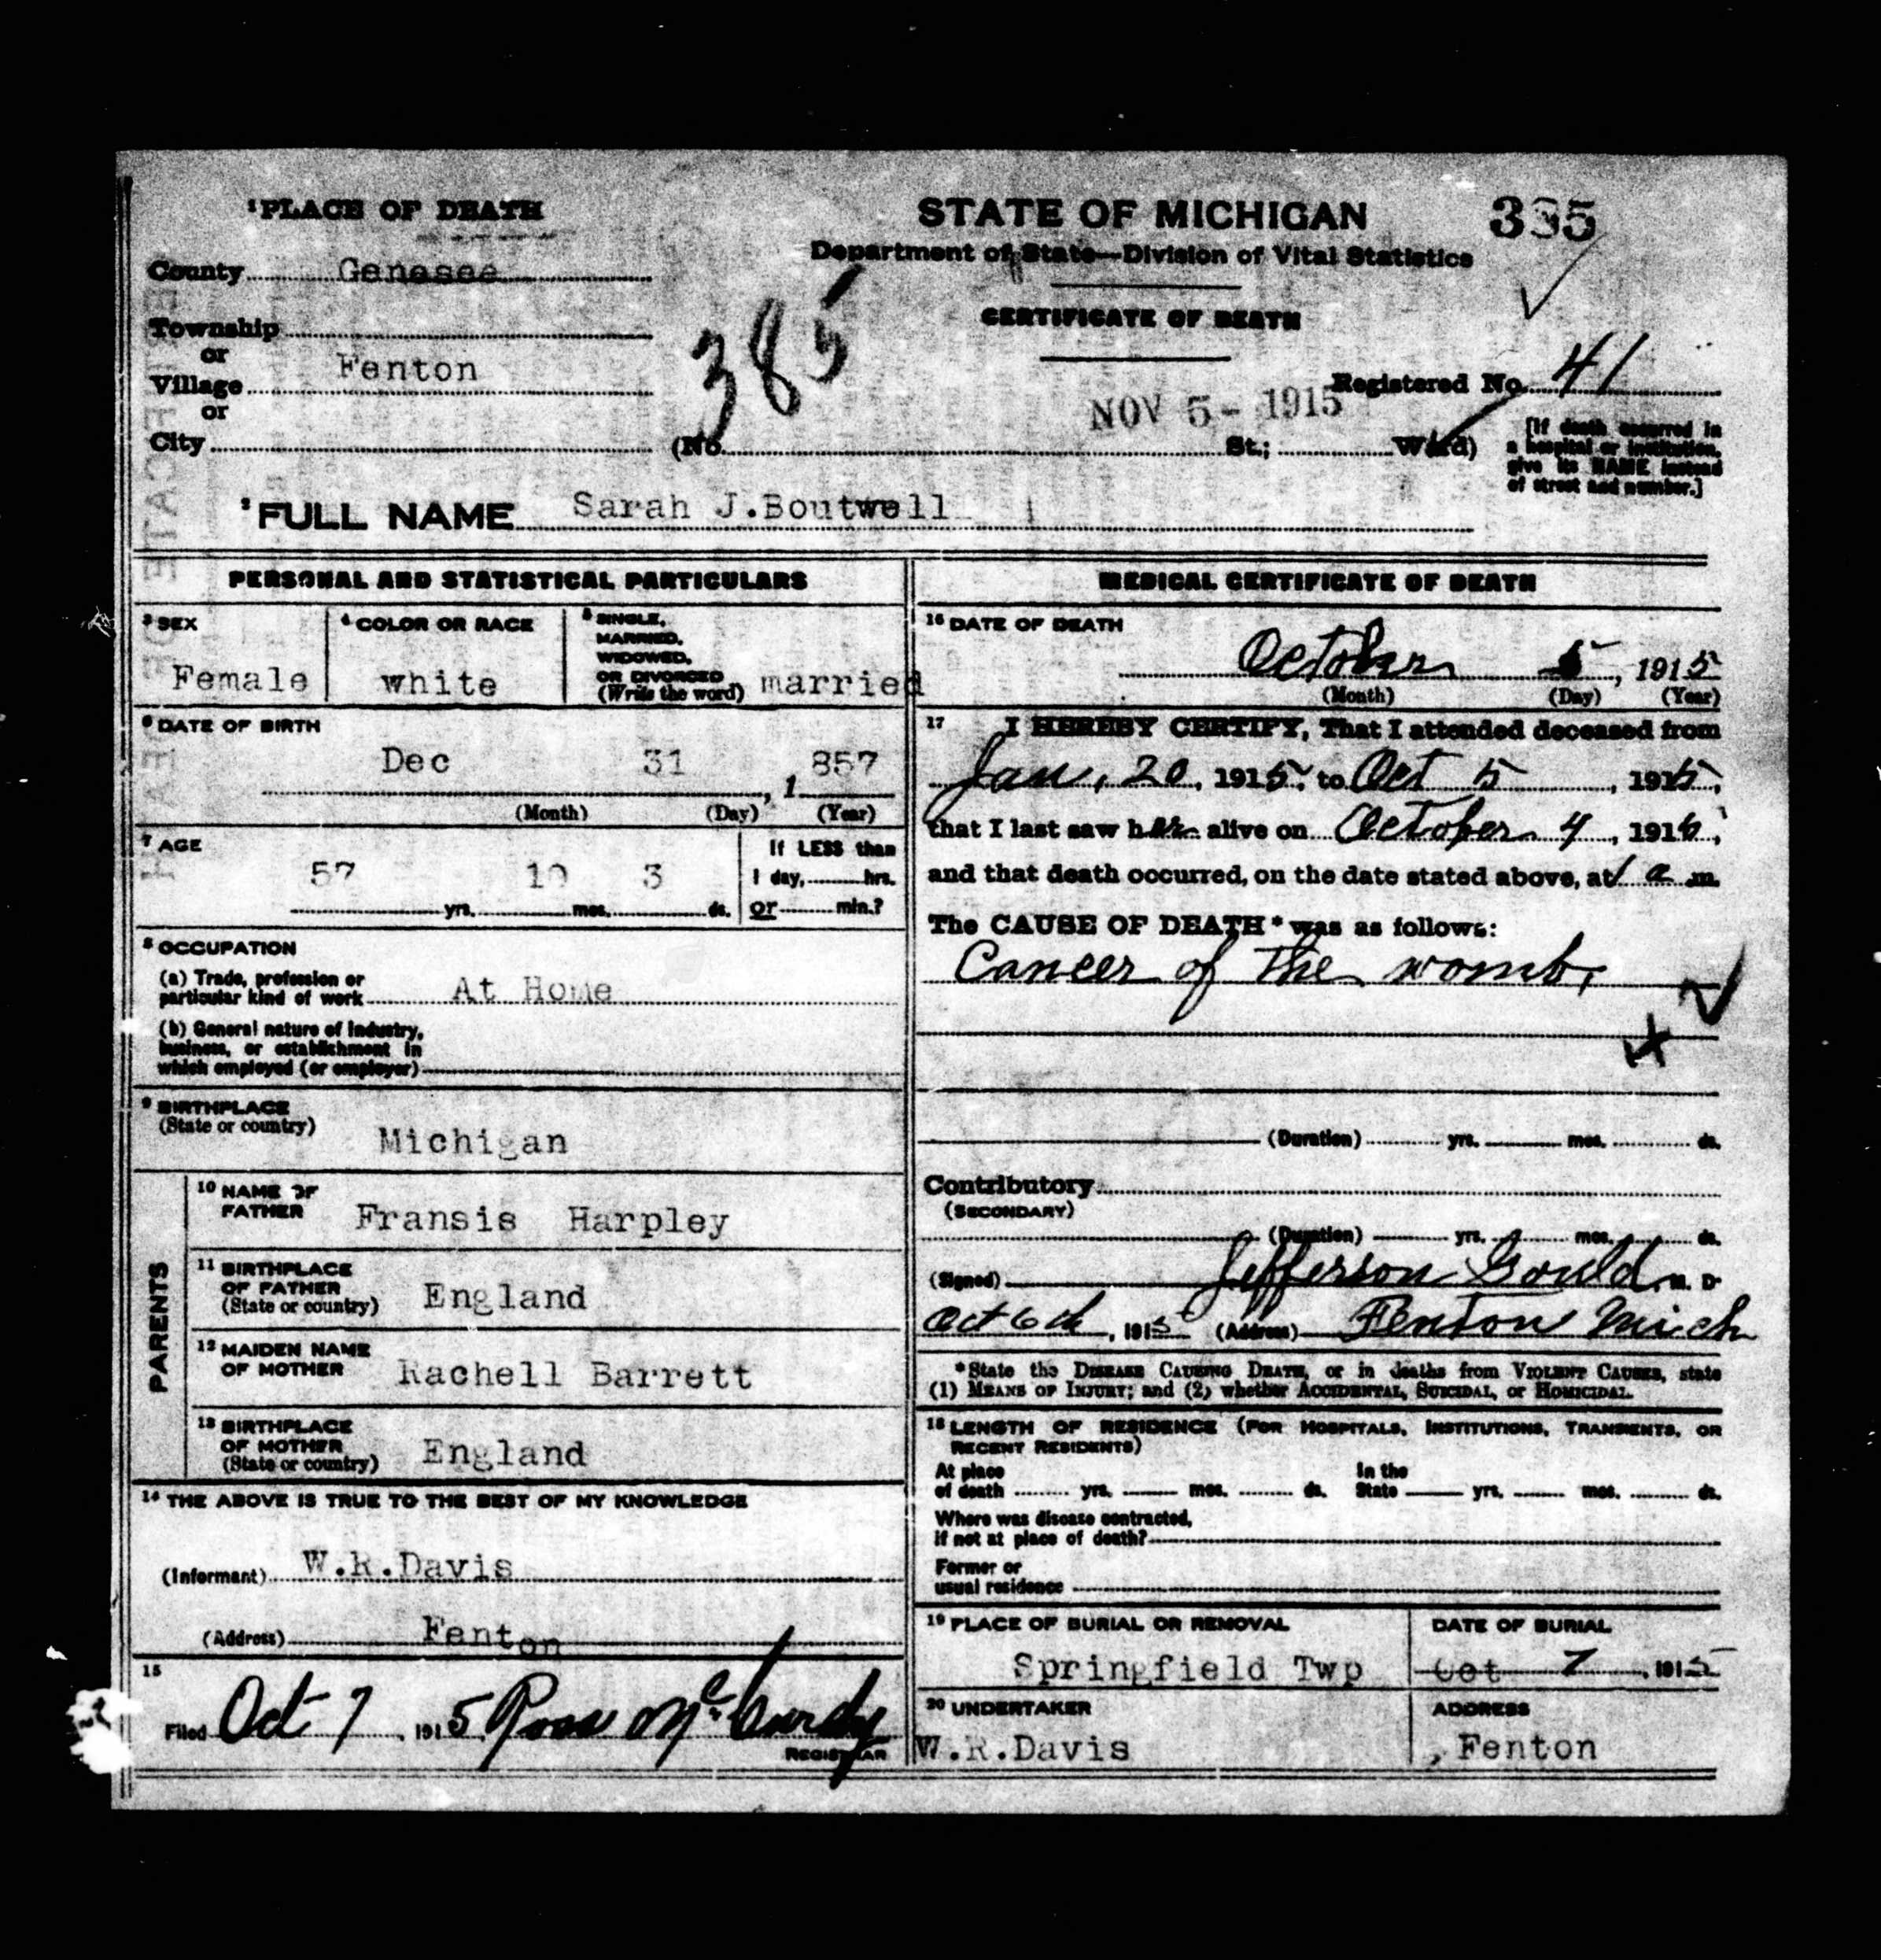 1 PLACE OF DEATH
STATE OF MICHIGAN
385
Department of State—Division of Vital Statistics
County Genesee
CERTIFICATE OF DEATH
Township
or
Village Fenton
or
City
385
NOV 5 - 1915
Registered No. 41
(No. St.; Ward)
[If death occurred in
a hospital or institution,
give its NAME instead
of street and number.]
2 FULL NAME Sarah J.Boutwell
PERSONAL AND STATISTICAL PARTICULARS
3 SEX
Female
4 COLOR OR RACE
white
5 SINGLE,
MARRIED,
WIDOWED,
OR DIVORCED
(Write the word) married
6 DATE OF BIRTH
Dec 31, 1 857
(Month) (Day) (Year)
7 AGE
57 yrs. mos. 3 ds.
If LESS than
1 day, hrs.
or min.?
8 OCCUPATION
(a) Trade, profession or
particular kind of work At Home
(b) General nature of Industry,
business, or establishment in
which employed (or employer)
9 BIRTHPLACE
(State or country)
Michigan
PARENTS
10 NAME OF
FATHER Fransis Harpley
11 BIRTHPLACE
OF FATHER
(State or country) England
12 MAIDEN NAME
OF MOTHER Rachell Barrett
13 BIRTHPLACE
OF MOTHER
(State or country) England
14 THE ABOVE IS TRUE TO THE BEST OF MY KNOWLEDGE
(Informant) W.R.Davis
(Address) Fenton
15
Filed Oct 7, 1915 Ross McCurdy
REGISTRAR
MEDICAL CERTIFICATE OF DEATH
16 DATE OF DEATH
October 5, 1915
(Month) (Day) (Year)
17 I HEREBY CERTIFY, That I attended deceased from
Jan. 20, 1915, to Oct 5, 1915,
that I last saw her alive on October 4, 1915,
and that death occurred, on the date stated above, at 1 a m.
The CAUSE OF DEATH* was as follows:
Cancer of the womb.
(Duration) yrs. mos. ds.
Contributory
(SECONDARY)
(Duration) yrs. mos. ds.
(Signed) Jefferson Gould, M. D
Oct 6th, 1915 (Address) Fenton Mich
*State the DISEASE CAUSING DEATH, or in deaths from VIOLENT CAUSES, state
(1) MEANS OF INJURY; and (2) whether ACCIDENTAL, SUICIDAL, or HOMICIDAL.
18 LENGTH OF RESIDENCE (FOR HOSPITALS, INSTITUTIONS, TRANSIENTS, OR
RECENT RESIDENTS)
At place
of death yrs. mos. ds.
In the
State yrs. mos. ds.
Where was disease contracted,
if not at place of death?
Former or
usual residence
19 PLACE OF BURIAL OR REMOVAL
Springfield Twp
DATE OF BURIAL
Oct 7, 1915
20 UNDERTAKER
W.R.Davis
ADDRESS
, Fenton